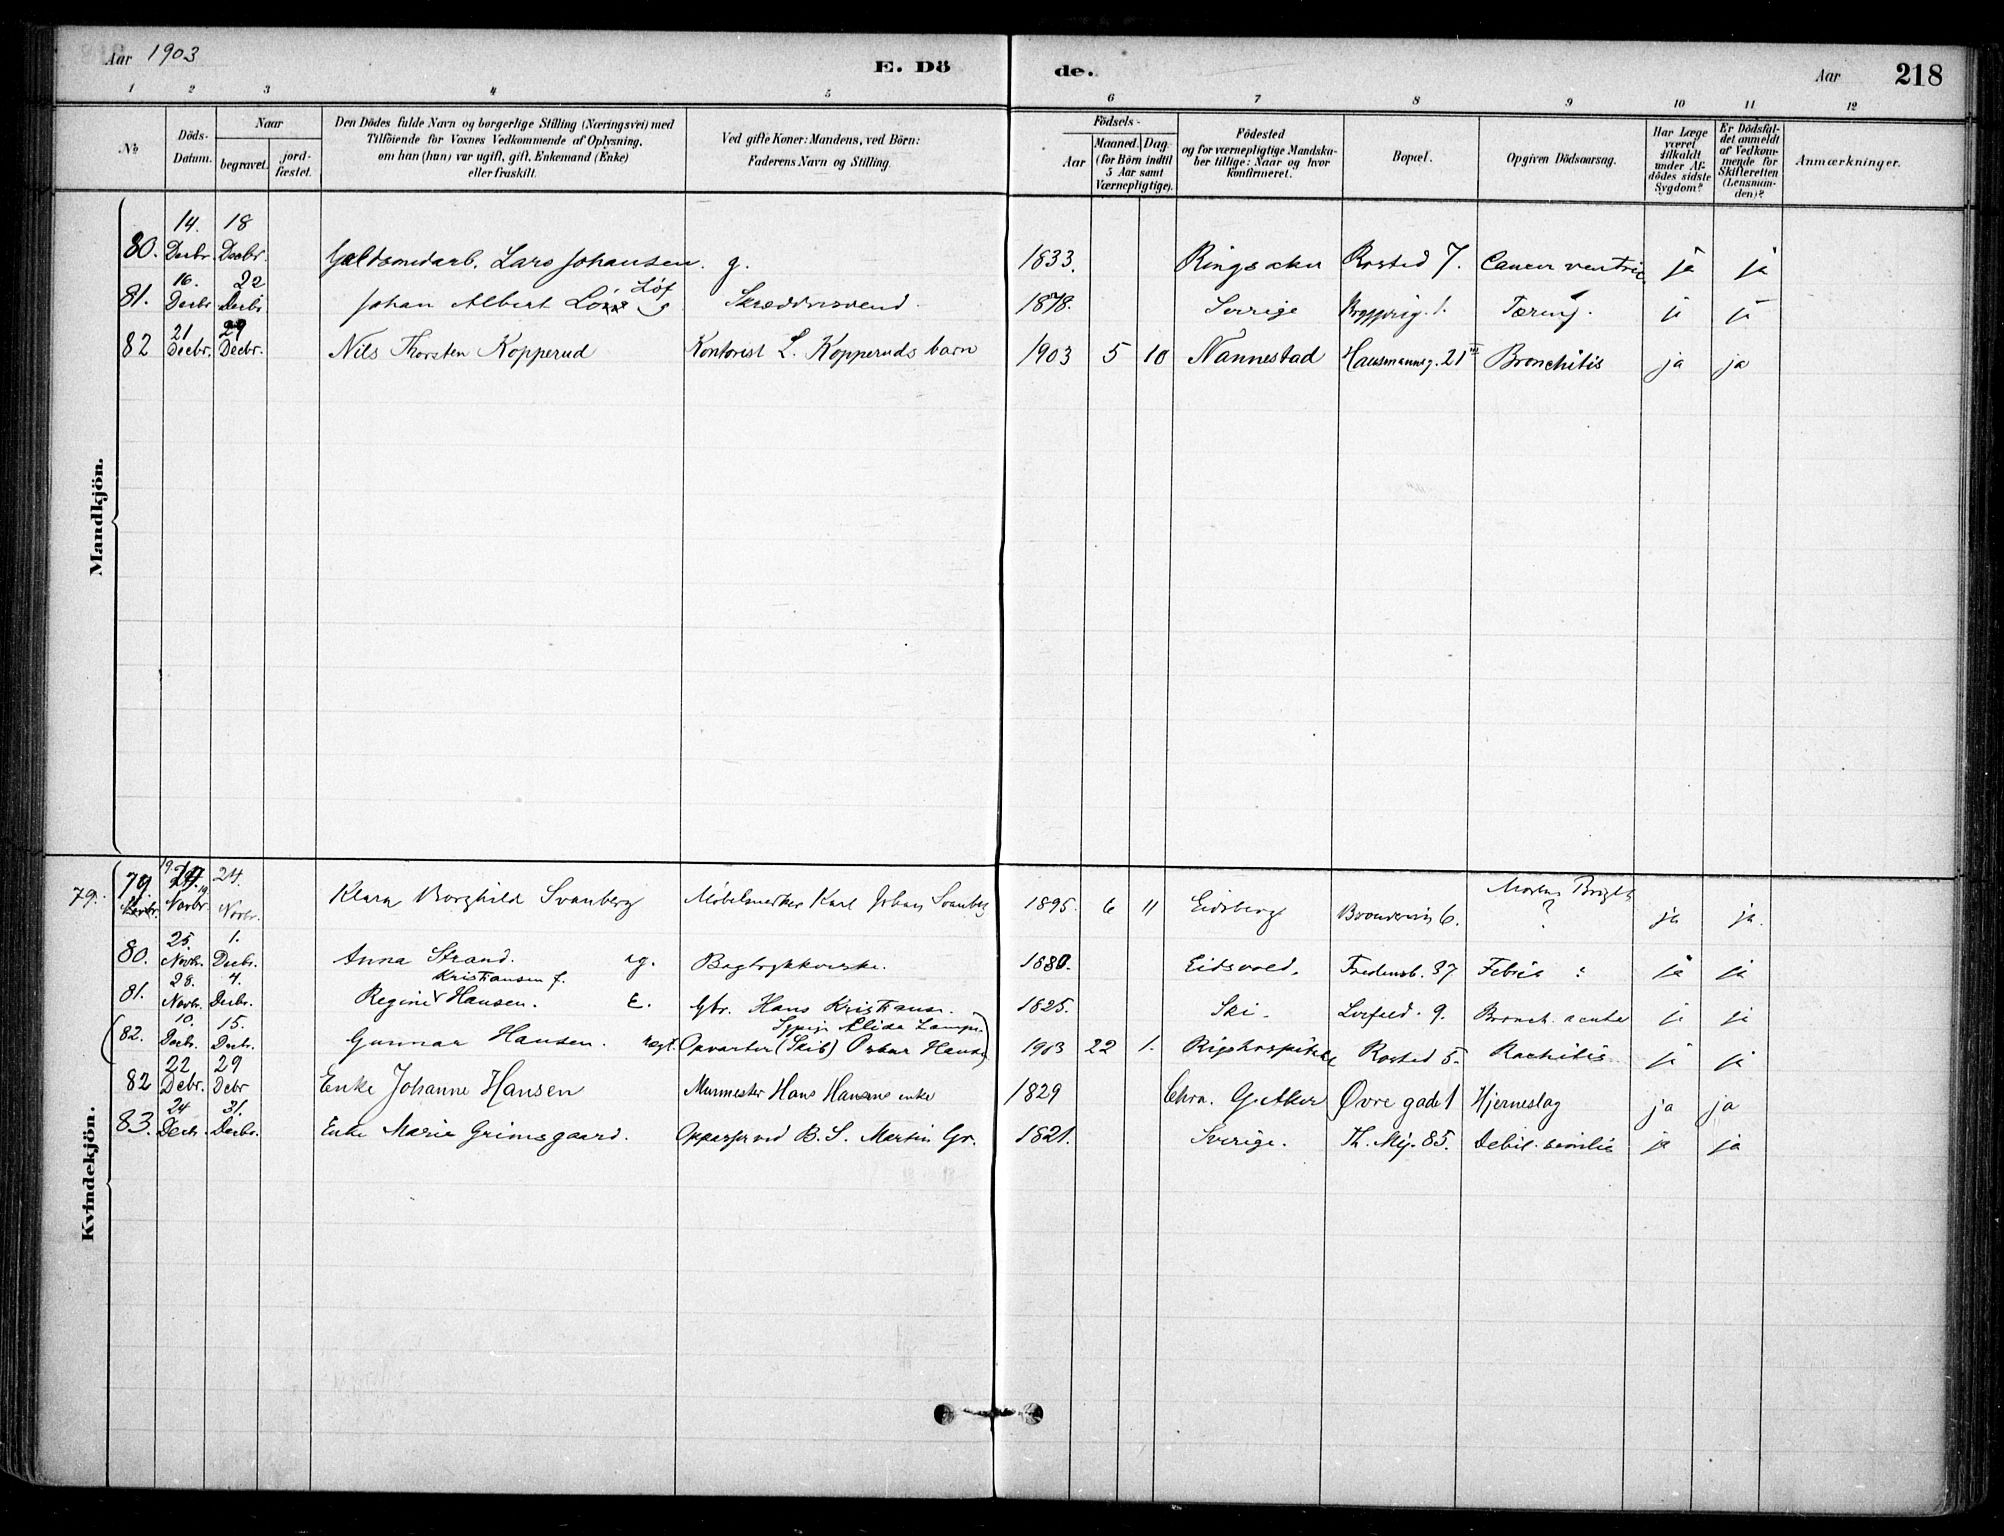 Aar 1903
E. Dö de.
Aar 218
1 2 3 4 5 6 7 8 9 10 11 12
No
Döds-Datum.
Naar
begravet.
jord-fæstet.
Den Dödes fulde Navn og borgerlige Stilling (Næringsvei) med
Tilföiende for Voxnes Vedkommende af Oplysning,
om han (hun) var ugift, gift, Enkemand (Enke)
eller fraskilt.
Ved gifte Koner: Mandens, ved Börn:
Faderens Navn og Stilling.
Födsels-
Aar
Maaned. Dag
(for Börn indtil
5 Aar samt
Værnepligtige).
Födested
og for værnepligtige Mandska-
ber tillige: Naar og hvor
konfirmeret.
Bopæl.
Opgiven Dödsaarsag.
Har Læge
været
tilkaldt
under Af-
dödes sidste
Sygdom?
Er Dödsfal-
det anmeldt
af Vedkom-
mende for
Skifteretten
(Lensman-
den)?
Anmærkninger.
Mandkjön.
80. 14. Decbr. 18 Decbr. Guldsmedarb. Lars Johansen. g. 1833. Ringsaker Rosted 7. Cancer ventric ja ja
81. 16. Decbr. 22 Decbr. Johan Albert Löf Skræddersvend. 1878. Sverige 1. Tæring. ja ja
82 21 Decbr. 29 Decbr. Nils Thorsten Kopperud Kontorist L. Kopperuds barn 1903 5 10 Nannestad Hausmannsg. 21 III Bronchitis ja ja
Kvindekjön.
79. 79. 19. Novbr. 24. Novbr. Klara Borghild Svanberg Möbelsnedker Karl Johan Svanberg 1895. 6 11 Eidsberg 6. Morbus Brigth ? ja ja.
80. 25. Novbr. 1. Decbr. Anna Strand. ug. 1880. Eidsvold. Fredensb. 37 Febris ? ja ja
81. 28. Novbr. 4. Decbr. Regine Kristiansen f. Hansen. E. Gbr. Hans Kristians. 1825. Ski. 9. Bronch. acuta ja ja
(82. 10. Decbr. 15. Decbr. Gunnar Hansen. uegt. Opvarter (Skib) Oskar Hansen) 1903 22 1. Rigshospitalet Rosted 5. Rachitis ja ja
82 22 Debr. 29 Debr Enke Johanne Hansen Murmester Hans Hansens enke 1829 Chra. G. Aker Øvre gade 1 Hjerneslag ja ja
83. 24 Decbr. 31. Decbr. Enke Marie Grimsgaard. Oppasser ved B. S. Martin Gr. 1821. Sverige. Th. Mg. 85. Debil. senilis ja ja